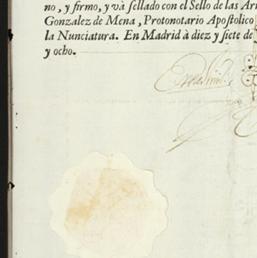 no, y firmo, y và sellado con el Sello de las Ar
Gonzalez de Mena, Protonotario Apostolico
la Nunciatura. En Madrid à diez y siete de
y ocho.